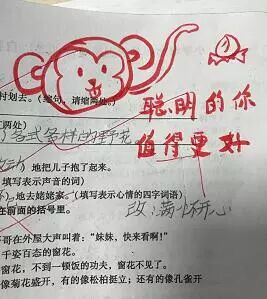 村划去。（缩句，请缩两处。）
聪明的你
值得更好
两处）
各式各样的野花
）地把儿子抱了起来。
填写表示声音的词）
）地去姥姥家。（填写表示心情的四字词语）
在前面的括号里。
改：满怀开心
哥在外屋大声叫着：“妹妹，快来看啊！”
千姿百态的窗花。
窗花，不到一顿饭的功夫，窗花不见了。
像菊花盛开，有的像松柏挺立；还有的像孔雀开